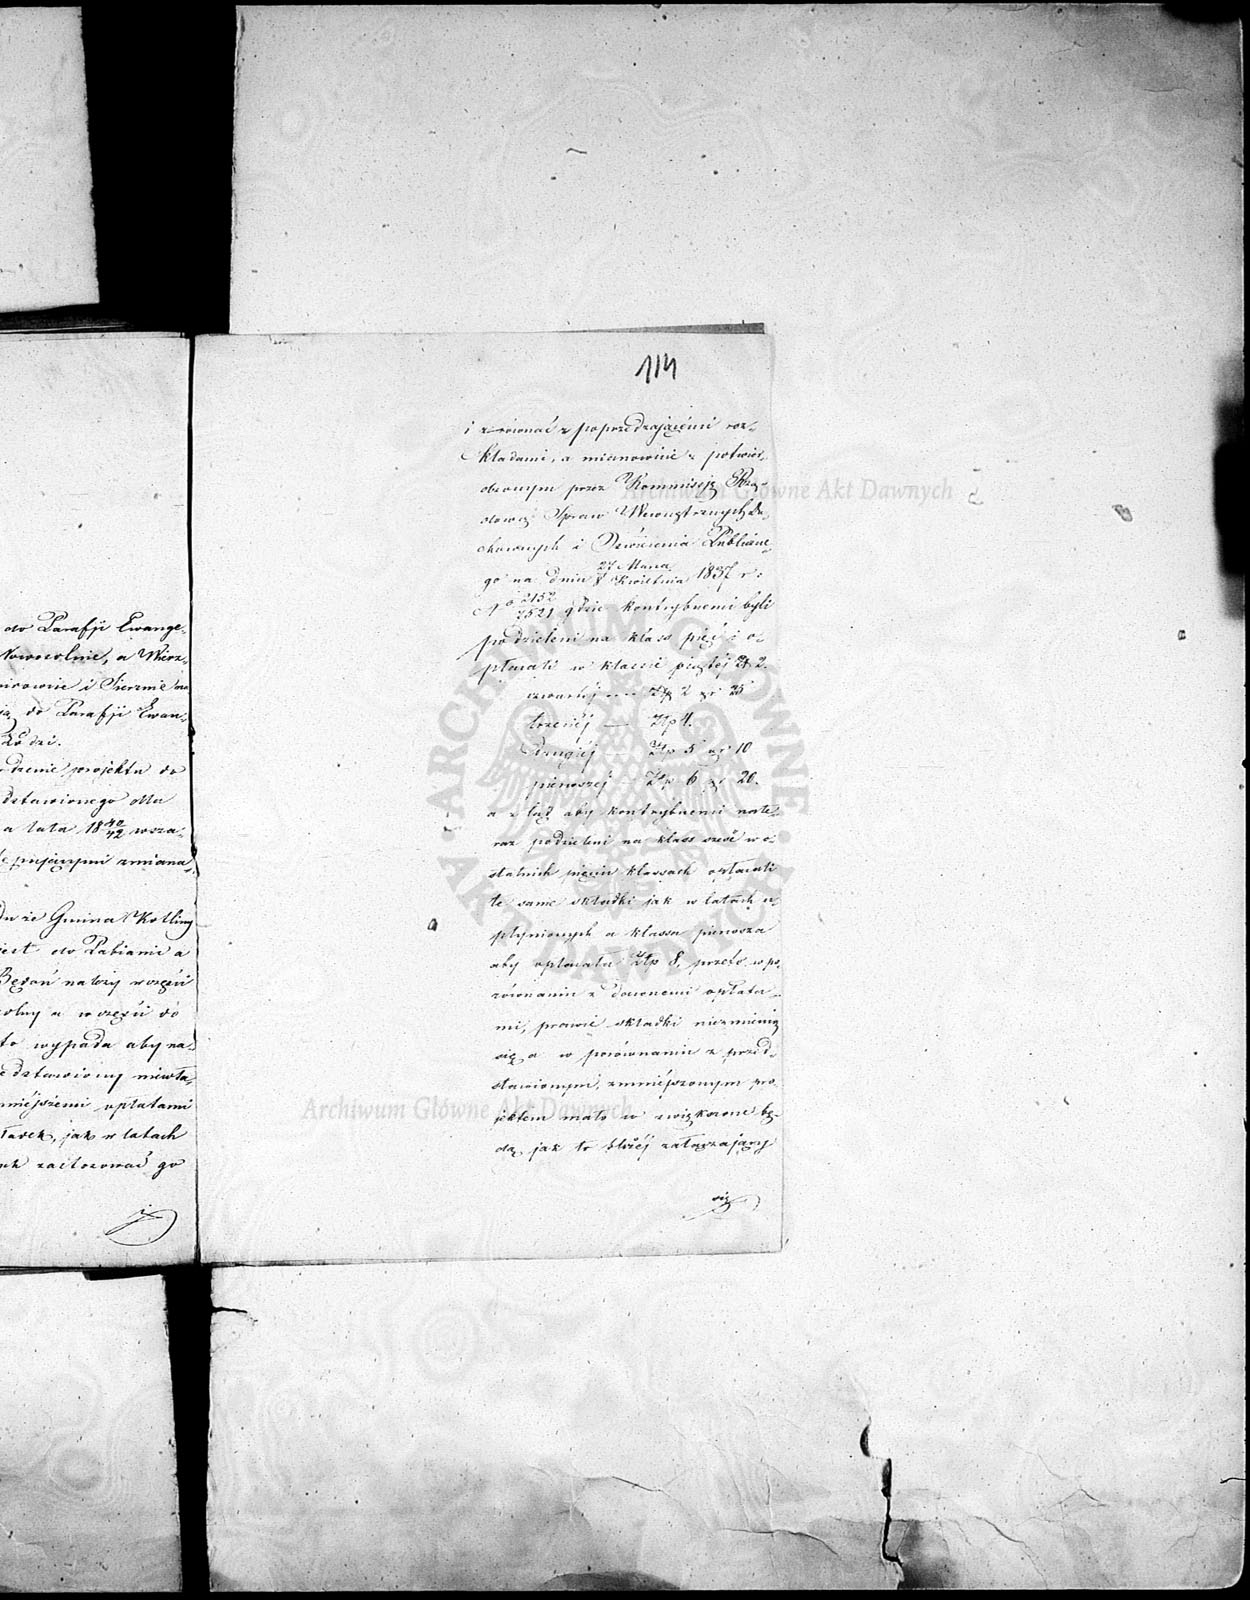 do Parafji Ewange-
Nowosolnie, a Wierz-
mirowie i Sierznie na
ją do Parafji Ewan-
Łodzi.
dzenie projektu do
dstawionego dla
a lata 18 40/42 wsza-
tępującymi zmiana
du że Gmina Kotliny
jest do Pabianic a
Będoń należy w części
solny a w części do
to wypada aby na-
edstawiony niewła-
mniejszemi opłatami
Tarek, jak w latach
zastosować go
114
i zrównać z poprzedzającémi roz-
kładami, a mianowicie z potwier-
dzonym przez Kommissją Rzą-
dową Spraw Wewnętrznych Du-
chownych i Oświecenia Publiczne-
go na dniu 27 Marca/8 Kwietnia 1837 r:
No 2152/7521 gdzie kontrybuenci byli
podzieleni na klass pięć i o-
płacali w klassie piątéj Zł 2.
czwartéj — Złp 2 gr 25
trzeciéj — Złp 4.
drugiéj — Złp 5 gr 10
pierwszéj — Złp 6 gr 20.
a ztąd aby kontrybuenci note-
raz podzieleni na klass sześć w o-
statnich pięciu klassach opłacali
te same składki jak w latach u-
płynionych a klassa pierwsza
aby opłacała Złp 8, przeto w po-
równaniu z dawnemi opłata-
mi, prawie składki niezmienią
się a w porównaniu z przed-
stawionym, zmniejszonym pro-
jektem mało co zwiększone bę-
dą jak to bliżéj załączający
się
Archiwum Główne Akt Dawnych
Archiwum Główne Akt Dawnych
ARCHIWUM GŁÓWNE AKT DAWNYCH